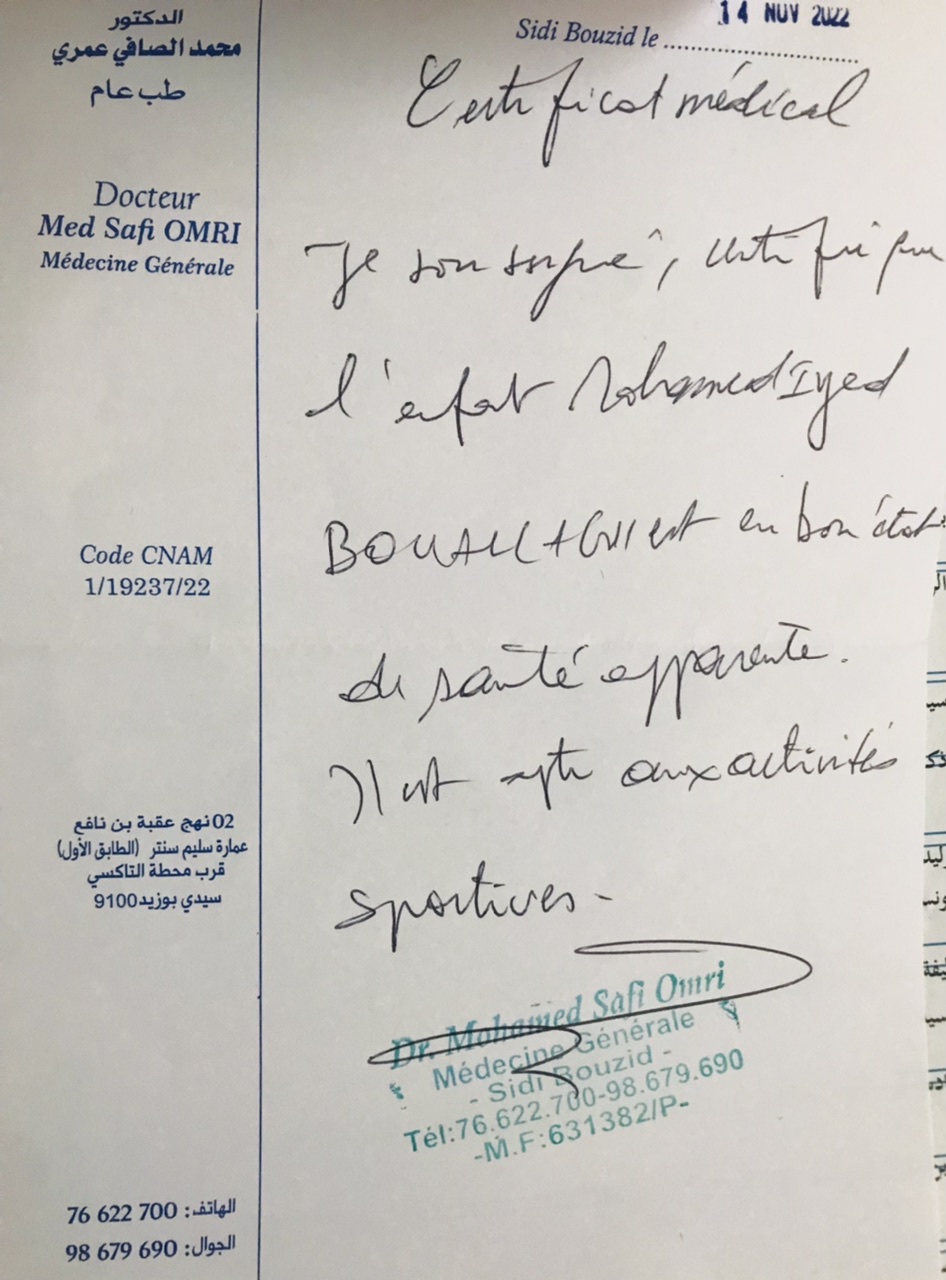 الدكتور
محمد الصافي عمري
طب عام
Docteur
Med Safi OMRI
Médecine Générale
Code CNAM
1/19237/22
02 نهج عقبة بن نافع
عمارة سليم سنتر (الطابق الأول)
قرب محطة التاكسي
سيدي بوزيد 9100
الهاتف: 700 622 76
الجوال: 690 679 98
14 NOV 2022
Sidi Bouzid le
Certificat médical
Je soussigné, certifie que
l'enfant Mohamed Iyed
BOUALLAGUI est en bon état
de santé apparente.
Il est apte aux activités
sportives -
Dr. Mohamed Safi Omri
Médecine Générale
- Sidi Bouzid -
Tél:76.622.700-98.679.690
-M.F:631382/P-